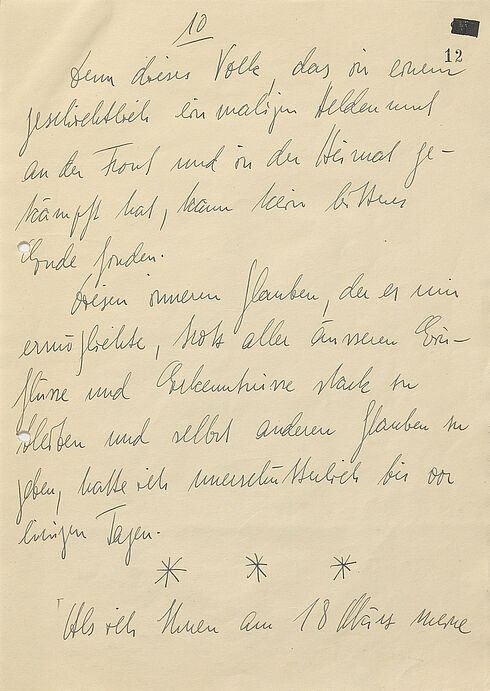 10
12
Denn dieses Volk, das in einem
geschichtlich einmaligen Heldenmut
an der Front und in der Heimat ge-
kämpft hat, kann kein bitteres
Ende finden.
Diesen inneren Glauben, der es mir
ermöglichte, trotz aller äusseren Ein-
flüsse und Erkenntnisse stark zu
bleiben und selbst anderen Glauben zu
geben, hatte ich unerschütterlich bis vor
einigen Tagen.
* * *
Als ich Ihnen am 18 März meine